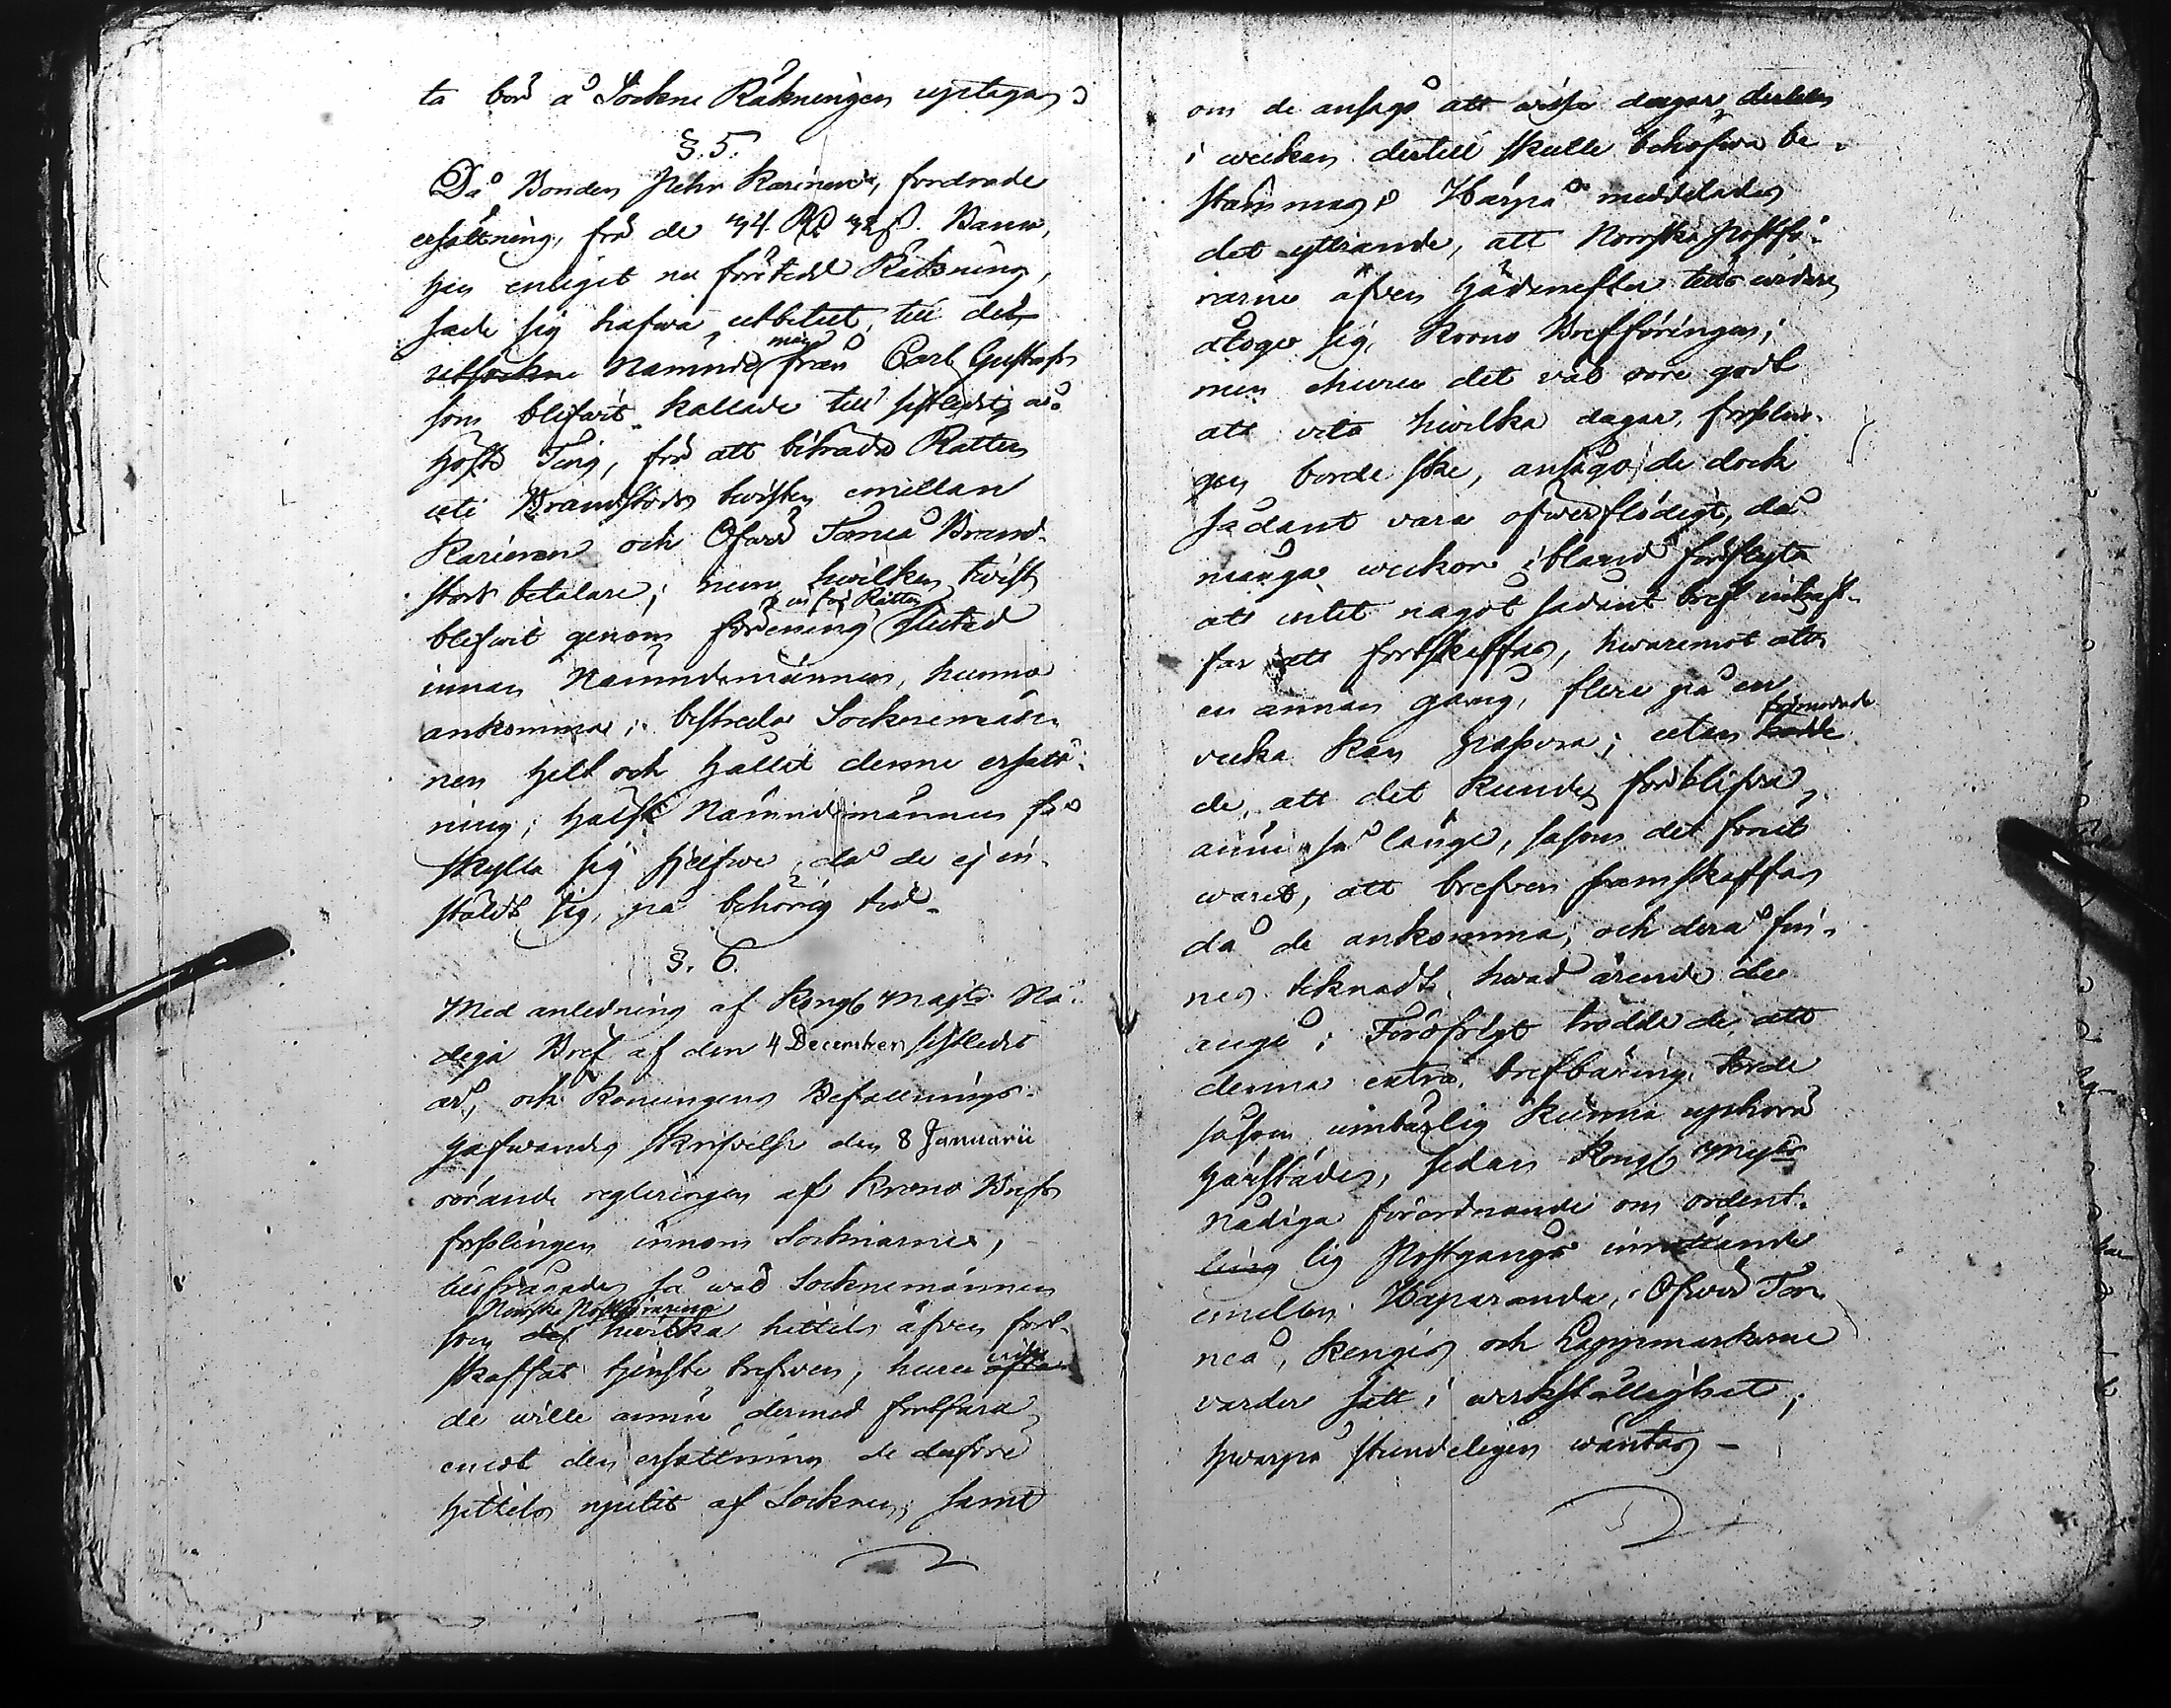 ta bör å Sockne Räkningen uptagas
§. 5.
Då Bonden Pehr Karinen, fordrade
ersättning, för de 44. Rd 42 s. Banco,
han enligit nu företedd Räkning,
sade sig hafwa utbetalt, till de
utsockne Nämndemän från Carl Gustafs
som blifwit kallade till sistledit års
Höste Ting, för att biträda Rätten
uti Brandstods twisten emillan
Karinen och Öfwer Torneå Brand-
stods betalare; men hwilken twist
blifwit genom förening inför Rätten slutad
innan Nämndemännen, hunno
ankomma; bestredo Sockenemän-
nen helt och hållit denne ersätt-
ning; hälst Nämndemännen få
skylla sig sjelfwe, då de ej in-
stäldt sig, på behörig tid.
§. 6.
Med anledning af Kongl Majts Nå-
diga Bref af den 4 December sistledit
år, och Konungens Befallnings-
hafwandes skrifvelse den 8 Januarii
rörande regleringen af Krono Brefs
forslingen innom Socknarne,
tillfrågades så wäl Socknemännen
som Norske Postförarena hwilka hittils äfven fort-
skaffat tjenste brefwen, huru wida
de wille ännu dermed fortfara
emot den ersättning de derföre
hittils njutit af Socknen, samt
om de ansågo att wissa dagar
i weckan dertill skulle behöfwa be-
stämmas? Härpå meddelades
det yttrande, att Norrska Postfö-
rarne äfven hädanefter tills widare
åtogo sig, Krono Brefföringen;
men ehuru det väl vore godt
att veta hwilka dagar, forslin-
gen borde ske, ansågo de dock
sådant vara öfwerflödigt, då
många weckor ibland förflyta
att intet något sådant bref inträf-
far att fortskaffas, hwaremot att
en annan gång, flere på en
vecka kan passera; utan förmenade
de, att det kunde förblifva,
ännu så länge, såsom det förut
warit, att brefven framskaffas
då de ankomma, och derå fin-
nes teknadt, hwad ärende de
angå; Föröfrigt trodde de, att
denna extra brefbäring torde
såsom umbärlig kunna uphöra
härstädes, sedan Kongl Majts
nådiga förordnande om ordent-
lig Postgångs inrättande
emellan Haparanda, Öfwer Tor-
neå, Kengis och Lappmarkerne
varder satt i werkställighet;
hwarpå stundeligen wäntas –